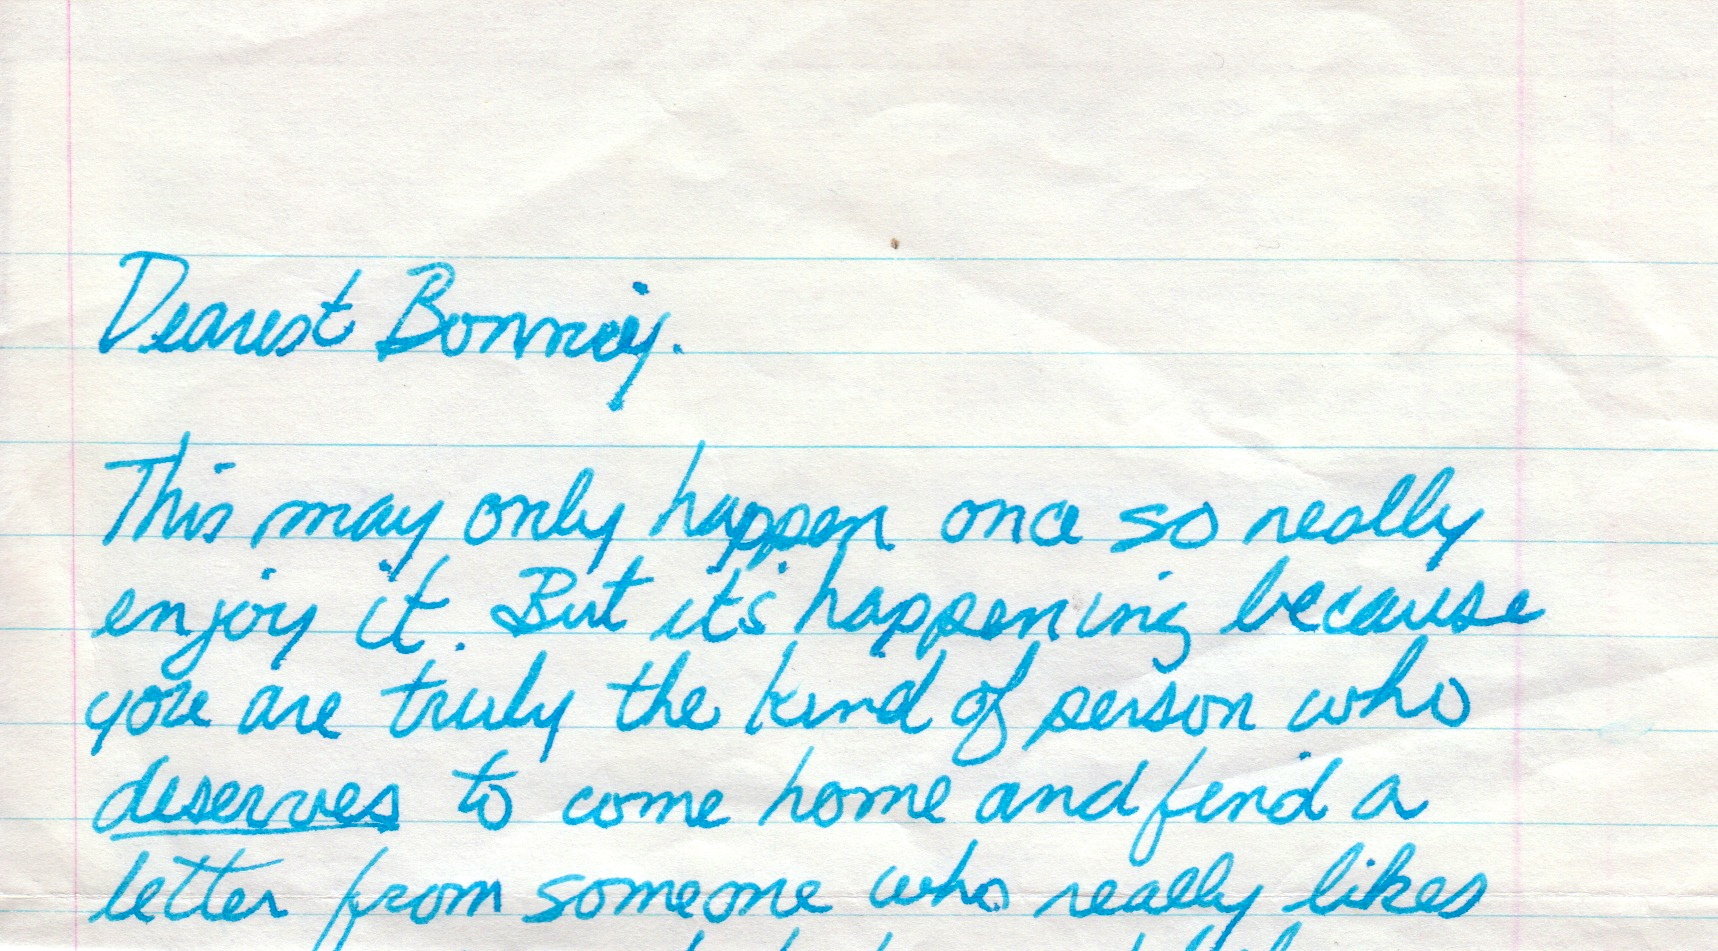 Dearest
This may only happen once so really
enjoy it. But it's happening because
you are truly the kind of person who
deserves to come home and find a
letter from someone who really likes